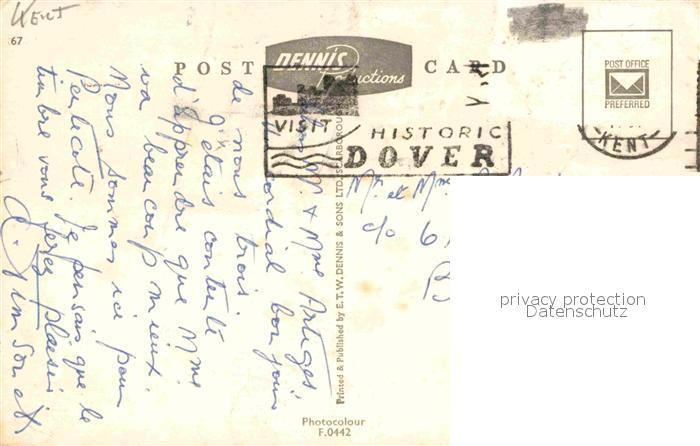 Kent
67
POST CARD
DENNIS
Productions
POST OFFICE
PREFERRED
KENT
VISIT
HISTORIC
DOVER
M. & Mme Artiges
cordial bonjour
de nous trois.
J'étais contente
d'apprendre que Mme
va beaucoup mieux.
Nous sommes ici pour
que le
timbre vous plaisir
Mr. et Mme
c/o 6
Printed & Published by E.T.W. DENNIS & SONS LTD. SCARBOROUGH
Photocolour
F.0442
privacy protection
Datenschutz